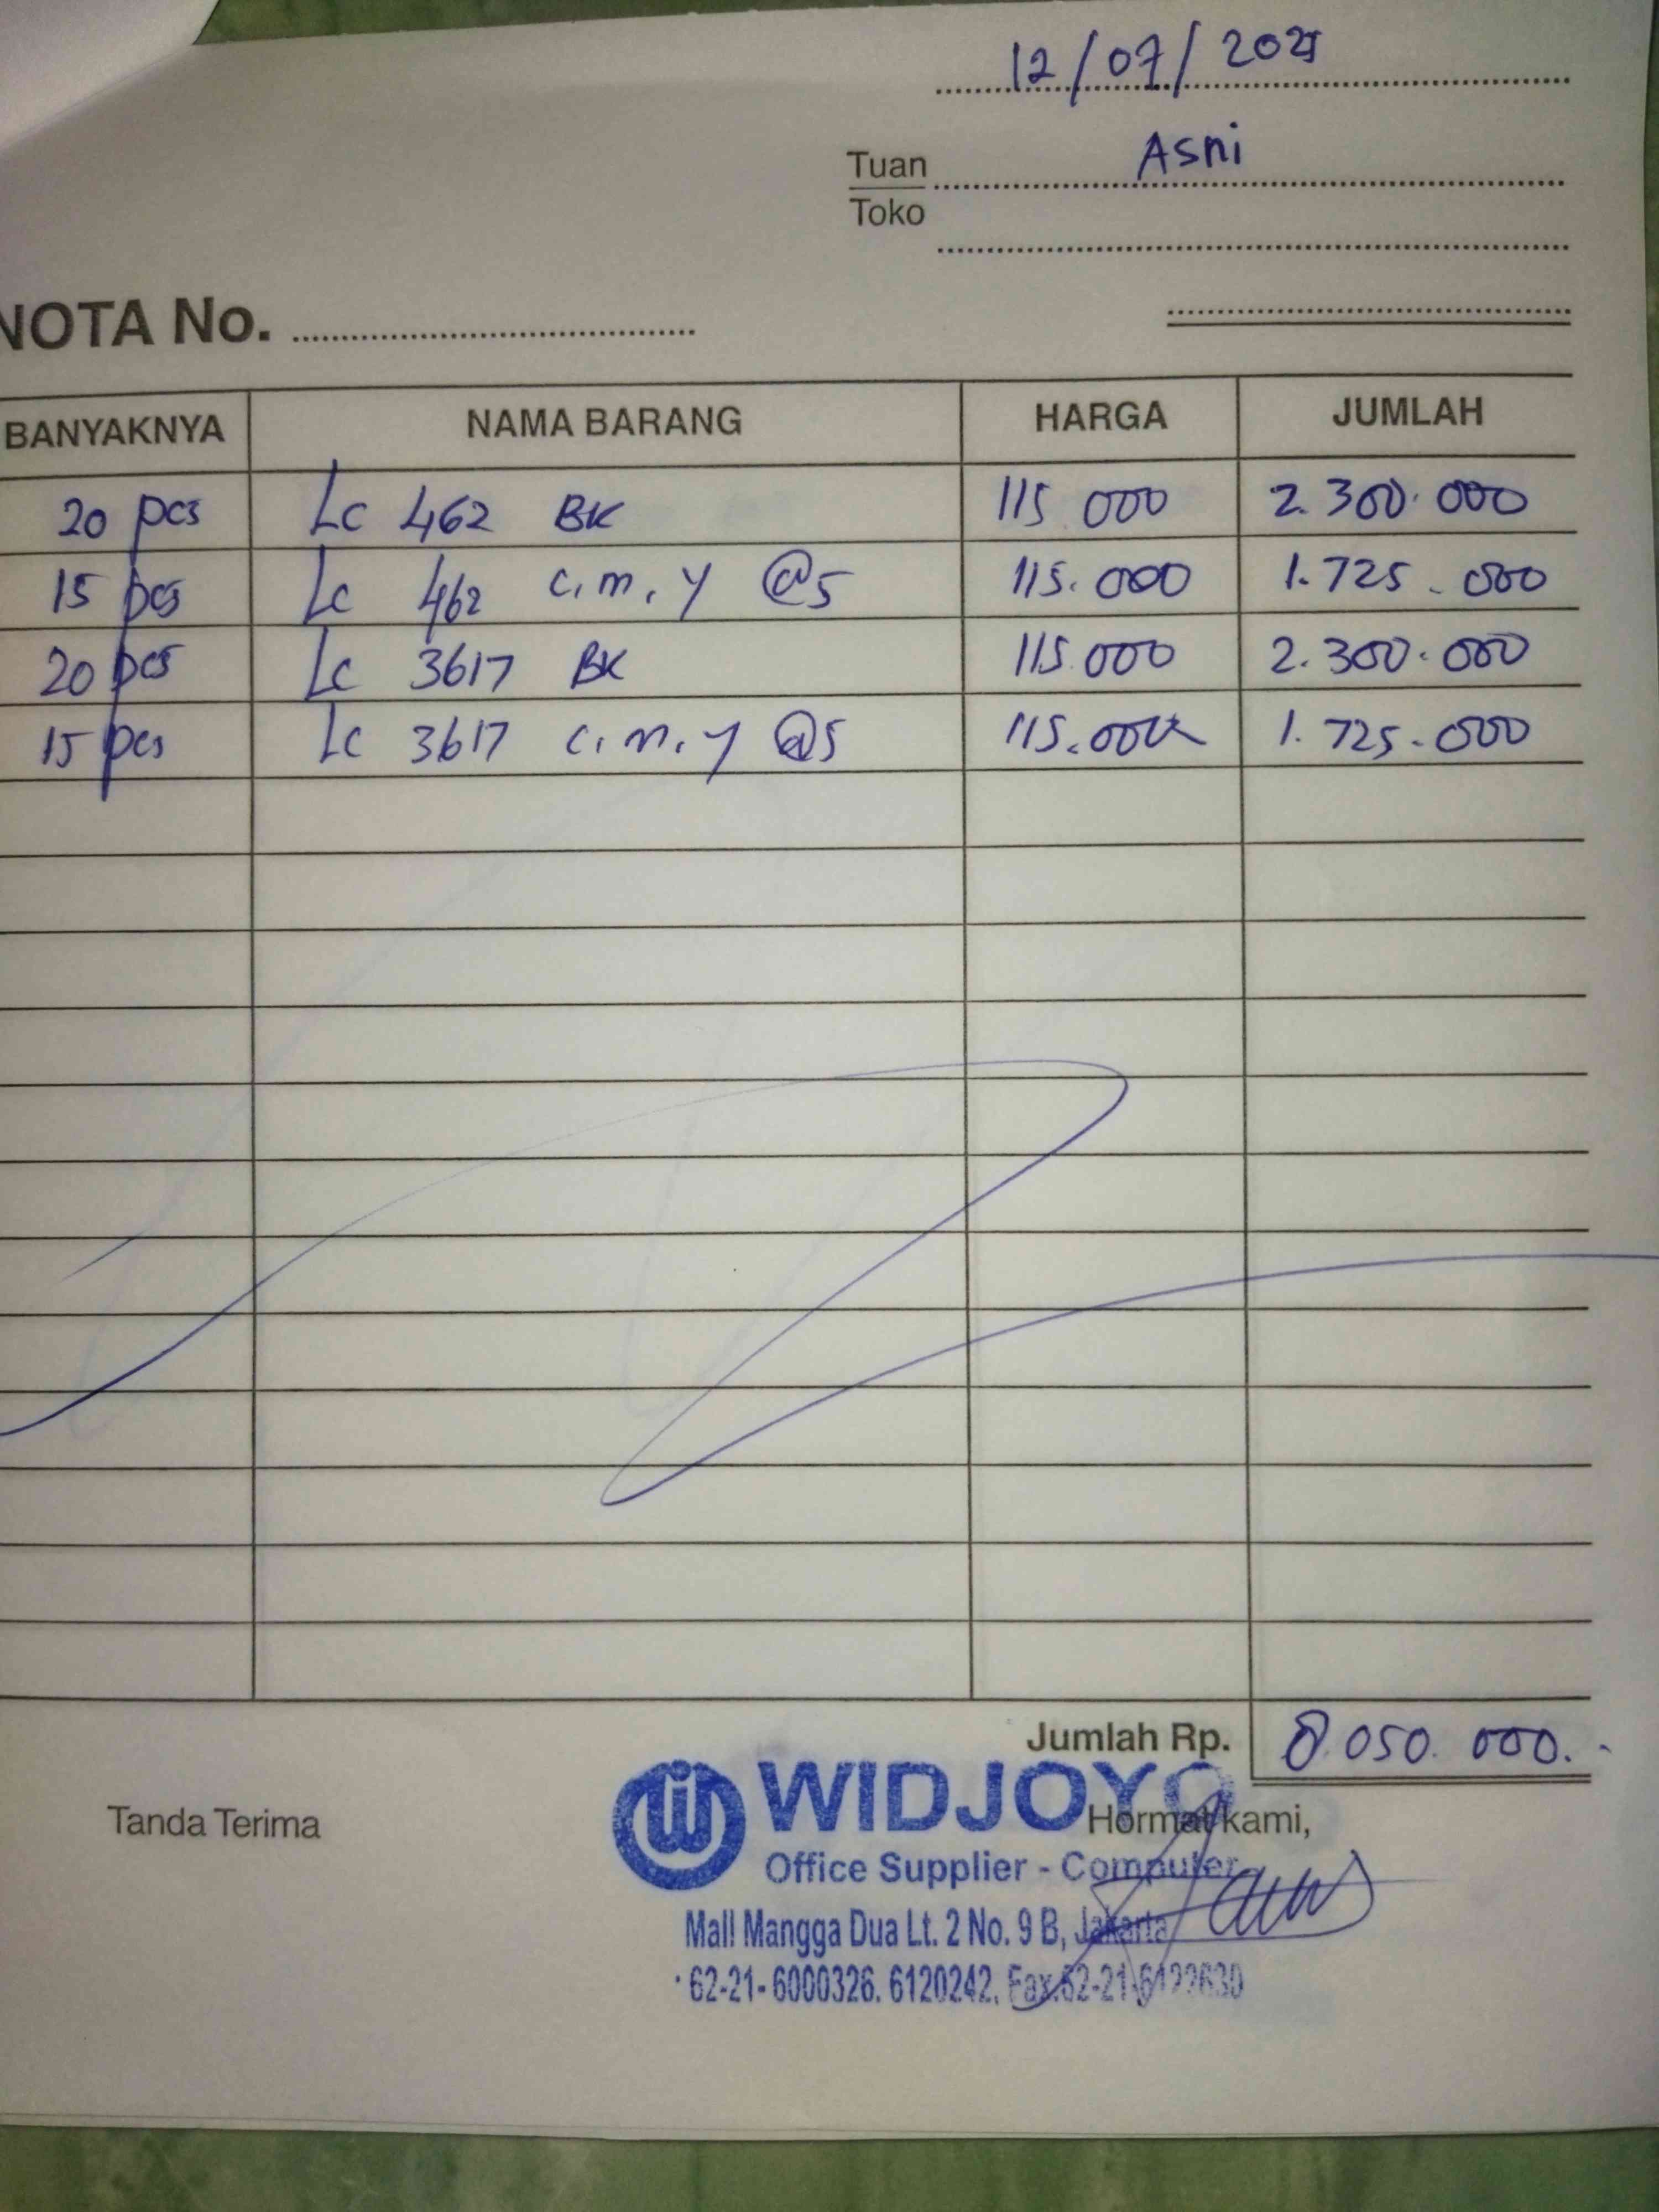 12/07/2021
Tuan Asni
Toko
NOTA No.
BANYAKNYA NAMA BARANG HARGA JUMLAH
20 pcs Lc 462 BK 115.000 2.300.000
15 pcs Lc 462 c.m.y @5 115.000 1.725.000
20 pcs Lc 3617 BK 115.000 2.300.000
15 pcs Lc 3617 c.m.y @5 115.000 1.725.000
Jumlah Rp. 8.050.000.-
WIDJOYO
Tanda Terima Hormat kami,
Office Supplier - Computer
Mall Mangga Dua Lt. 2 No. 9 B, Jakarta
62-21-6000326. 6120242. Fax.62-21-6122630